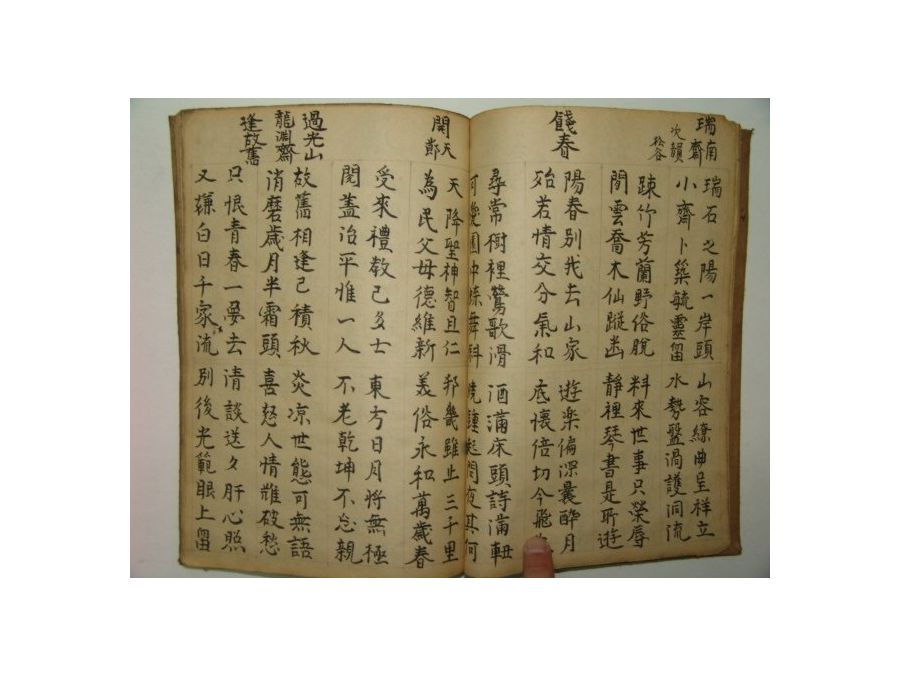 瑞南齋
次韻
松谷
瑞石之陽一岸頭 山容繚曲呈祥立
小齋卜築毓靈留 水勢盤渦護洞流
踈竹芳蘭野俗脫 料來世事只榮辱
閒雲喬木仙蹤幽 靜裡琴書是所遊
餞春
陽春別我去山家 遊楽偏深曩醉月
殆若情交分氣和 底懷倍切今
尋常樹裡鶯歌滑 酒滿床頭詩滿軸
開天節
天降聖神智且仁 邦畿雖止三千里
為民父母德維新 美俗永和萬歲春
受來禮教已多士 東方日月將無極
闓蓋治平惟一人 不老乾坤不忘親
過光山
龍淵齋
逢故舊
故舊相逢已積秋 炎凉世態可無語
消磨歲月半霜頭 喜怒人情難破愁
只恨青春一夢去 清談送夕肝心照
又嫌白日千家流 別後光範眼上留